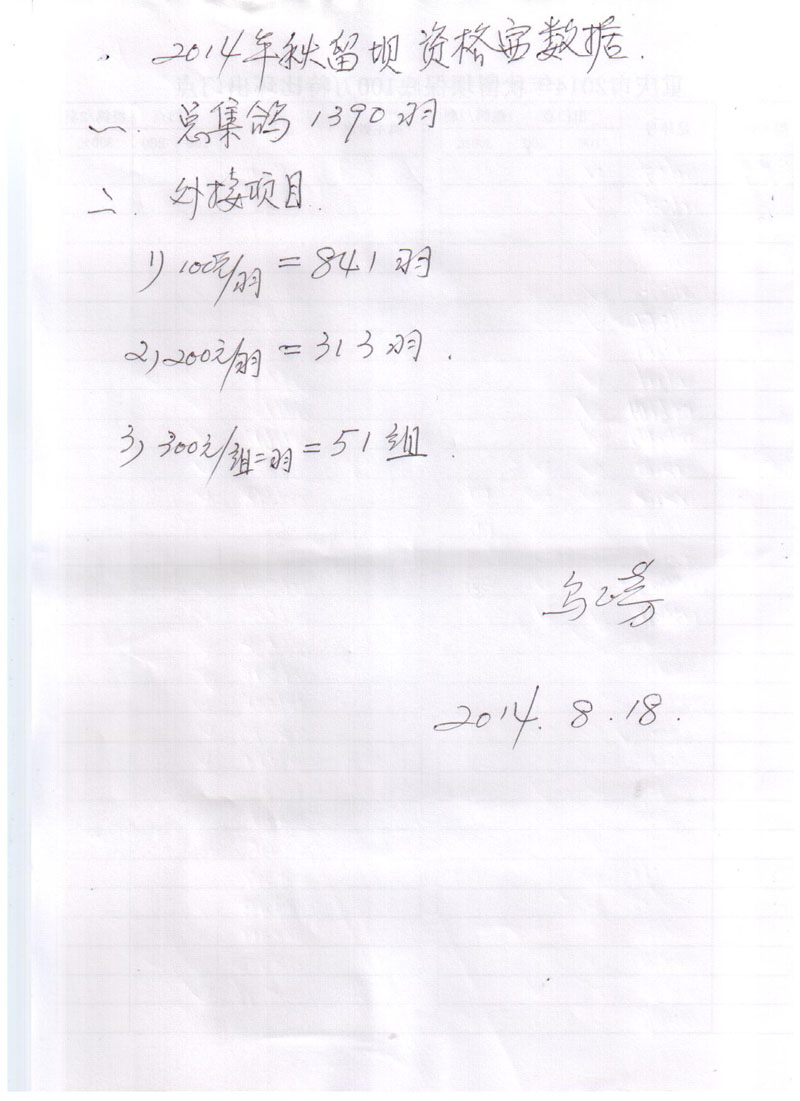 2014年秋留坝资格赛数据.
一. 总集鸽1390羽
二. 外接项目.
1) 100元/羽 = 841羽
2) 200元/羽 = 313羽.
3) 300元/组二羽 = 51组.
2014. 8. 18.